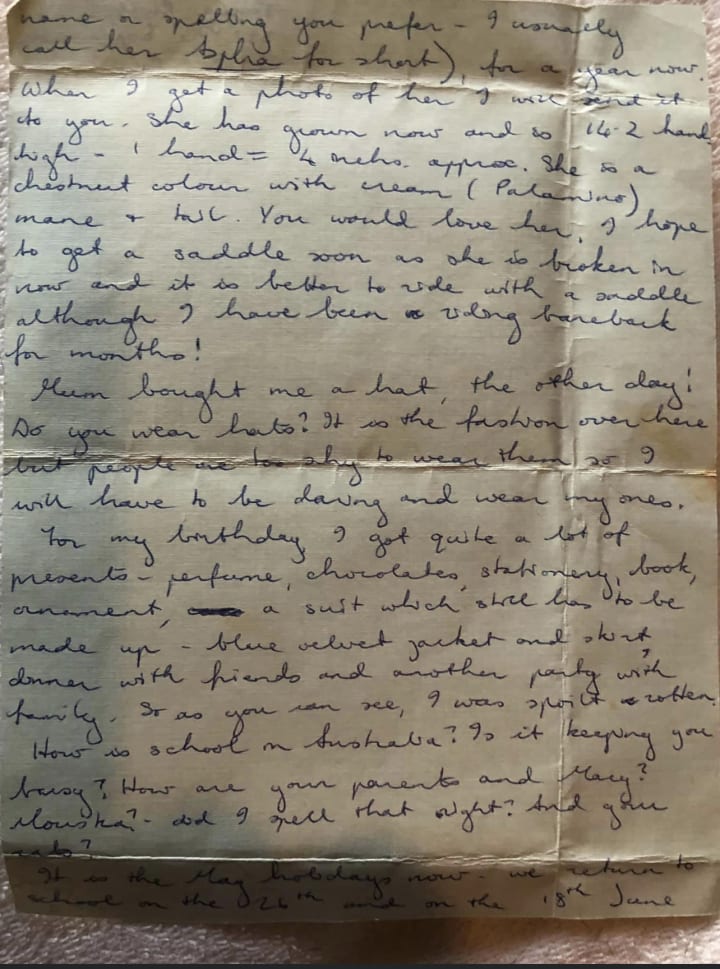 name or spelling you prefer - I usually
call her Aplha for short), for a year now.
When I get a photo of her I will send it
to you. She has grown now and is 14.2 hands
high - 1 hand = 4 inchs. approx. She is a
chestnut colour with cream (Palamino)
mane + tail. You would love her. I hope
to get a saddle soon as she is broken in
now and it is better to ride with a saddle
although I have been riding bareback
for months!
Mum bought me a hat, the other day!
Do you wear hats? It is the fashion over here
but people are too shy to wear them so I
will have to be daring and wear my ones.
For my birthday, I got quite a lot of
presents - perfume, chocolates, stationery, book,
ornament, a suit which still has to be
made up - blue velvet jacket and skirt,
dinner with friends and another party with
family. So as you can see, I was spoilt rotten.
How is school in Australia? Is it keeping you
busy? How are your parents and Mary?
Mouska? - did I spell that right? And your
cats?
It is the May holidays now - we return to
school on the 26th and on the 18th June